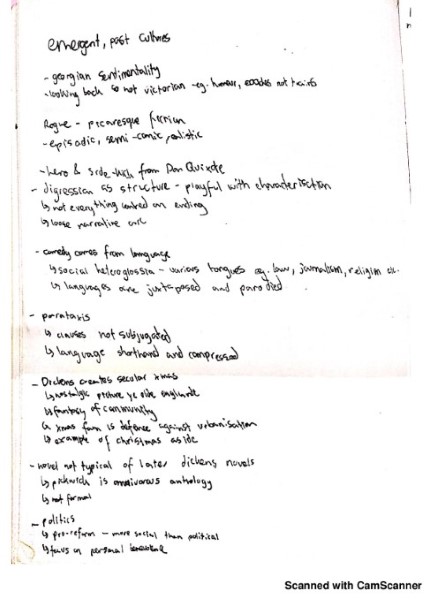 emergent, past cultures
- georgian sentimentality
- looking back so not victorian - eg. humour, coaches not trains
Rogue - picaresque fiction
- episodic, semi-comic, realistic
- hero & side-kick from Don Quixote
- digression as structure - playful with characterisation
↳ not everything linked on ending
↳ loose narrative arc
- comedy comes from language
↳ social heteroglossia - various tongues eg. law, journalism, religion etc.
↳ languages are juxtaposed and parodied
- parataxis
↳ clauses not subjugated
↳ language shorthand and compressed
- Dickens creates secular xmas
↳ nostalgic picture ye olde englande
↳ fantasy of community
↳ xmas farm is defence against urbanisation
↳ example of christmas aside
- novel not typical of later dickens novels
↳ pickwick is omnivorous anthology
↳ not formal
- politics
↳ pro-reform - more social than political
↳ focus on personal
Scanned with CamScanner